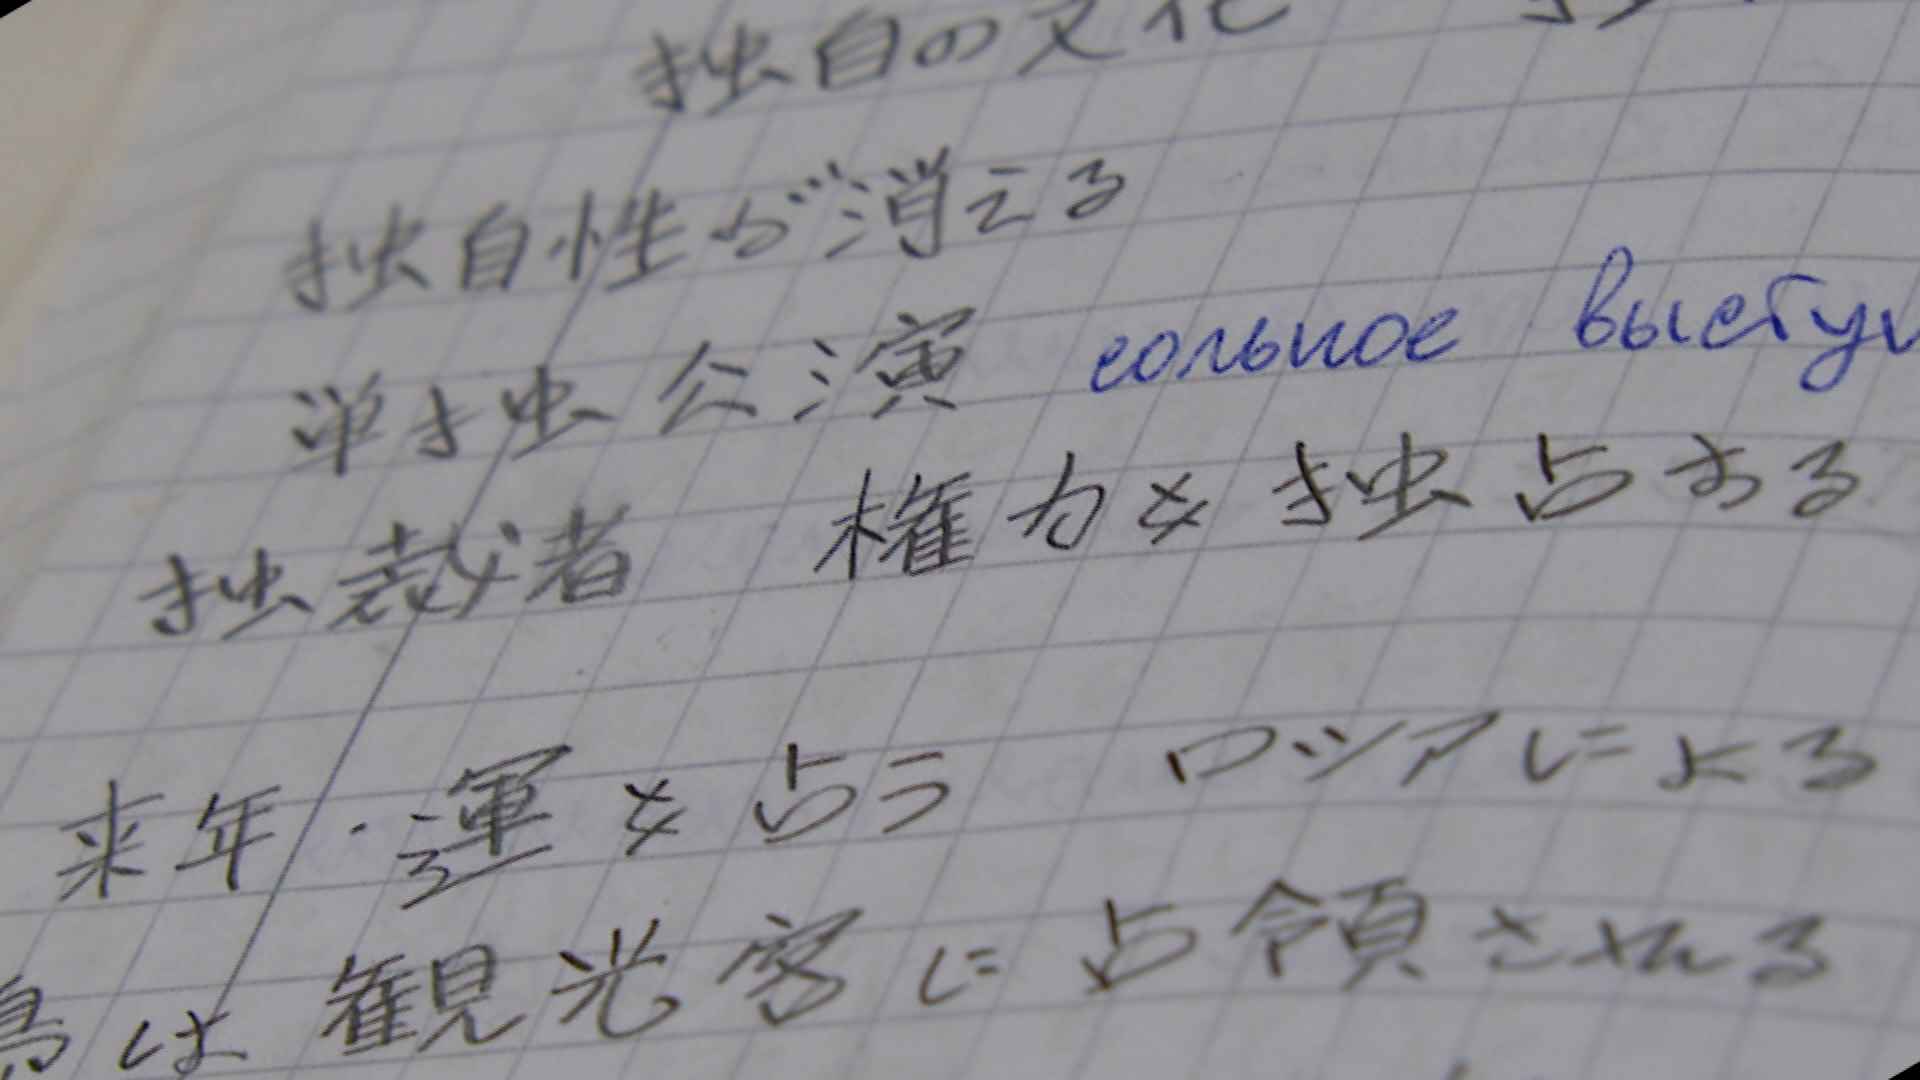 独自の文化
独自性が消える
単独公演 сольное
独裁者 権力を独占する
来年・運を占う ロシアによる
島は観光客に占領される